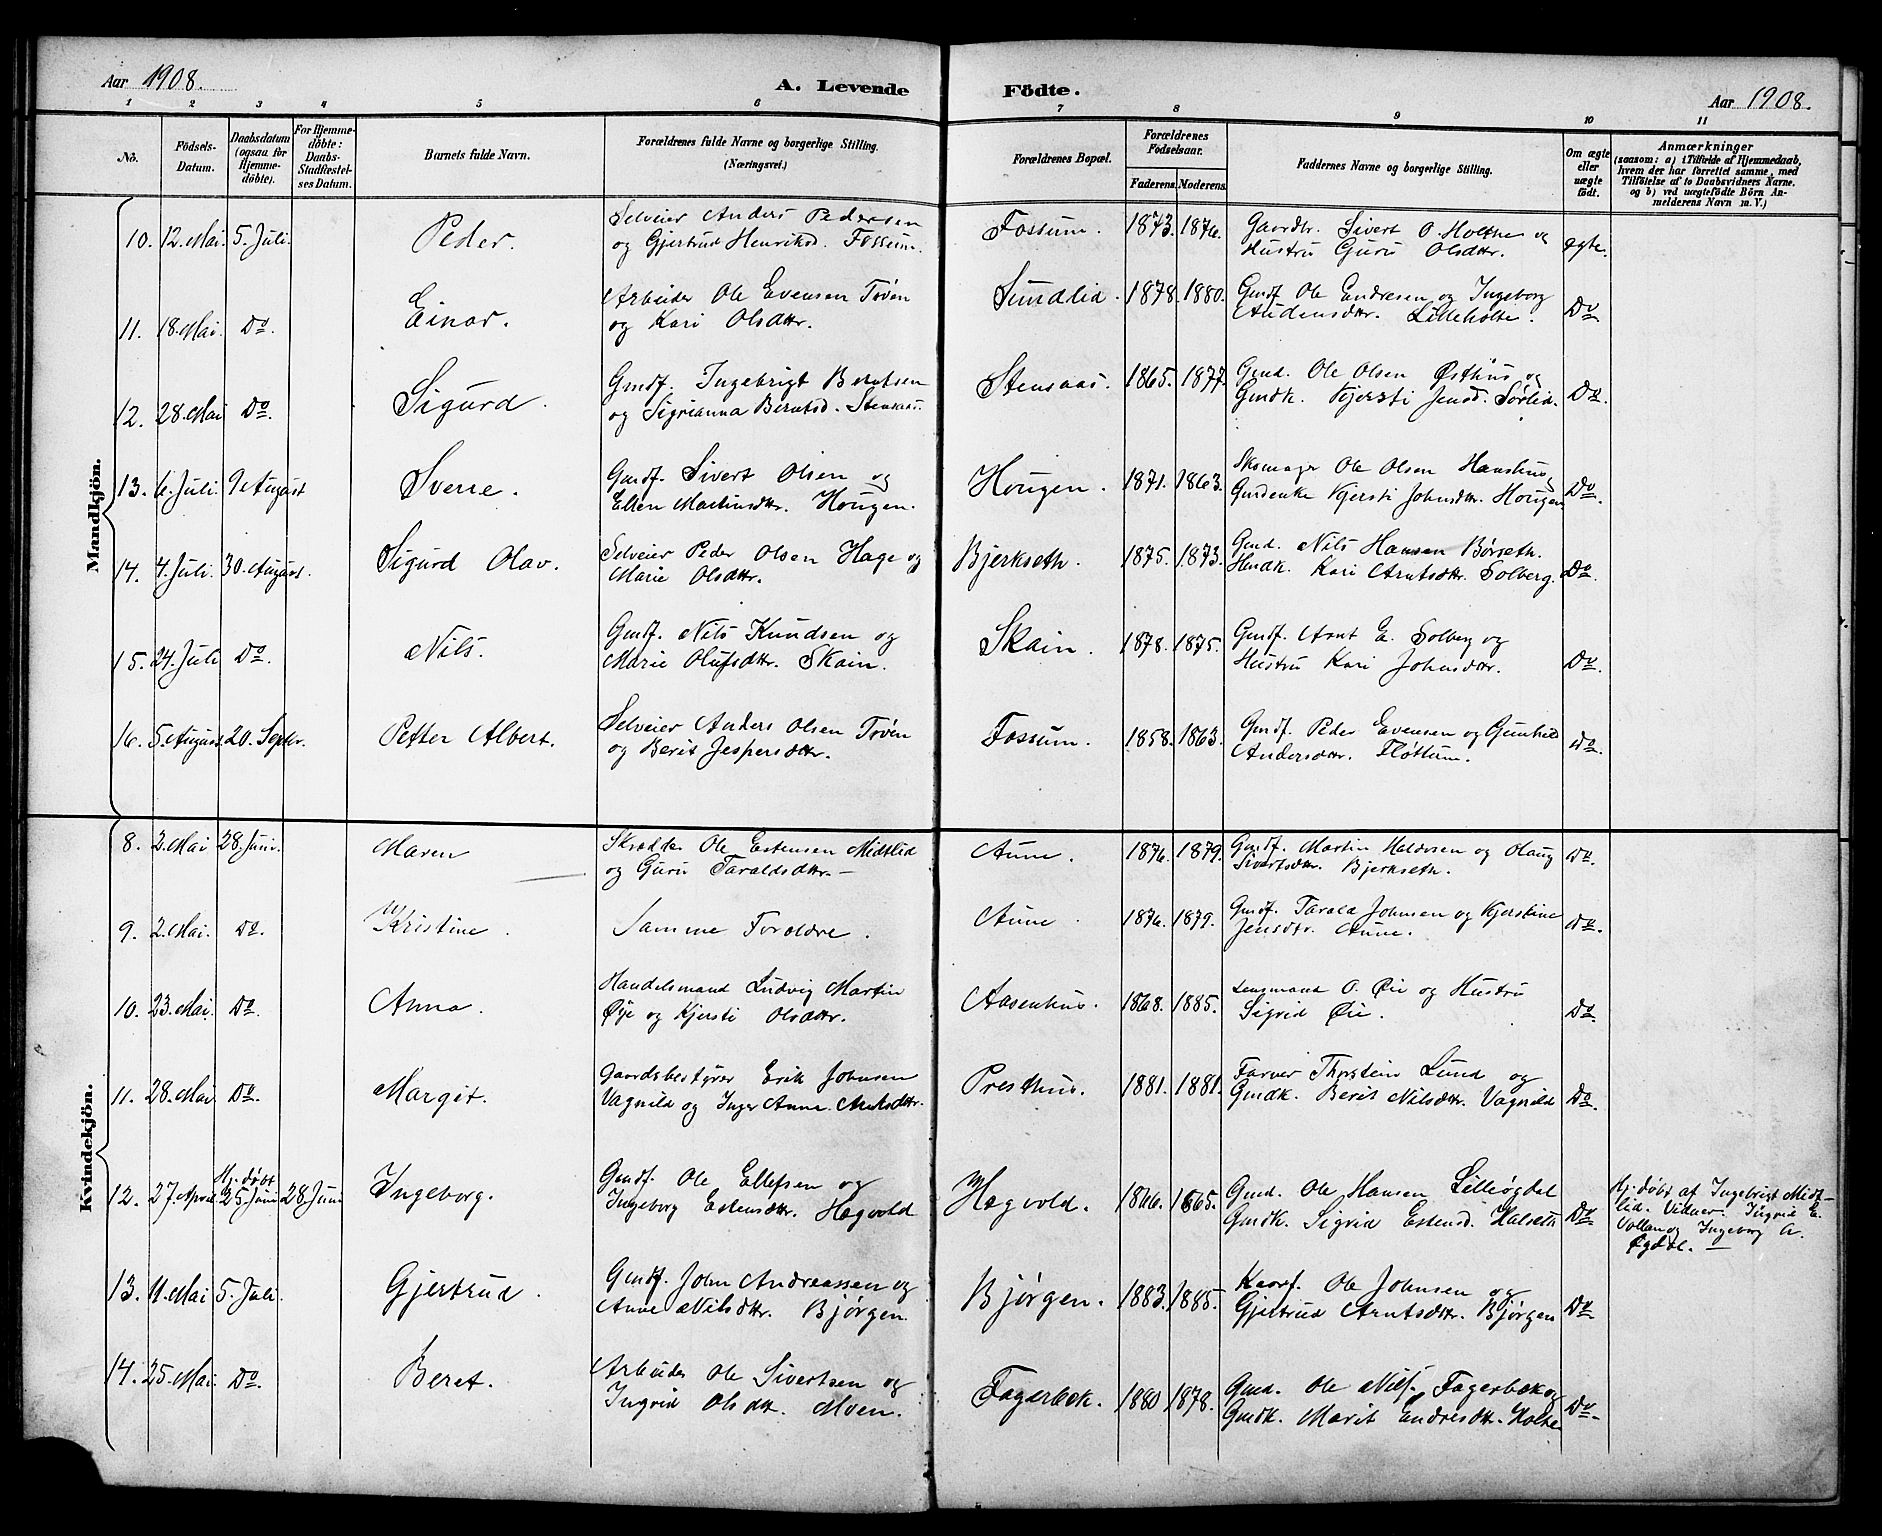 Aar 1908. A. Levende Födte. Aar 1908.
1 2 3 4 5 6 7 8 9 10 11
No. Födsels-Datum. Daabsdatum (ogsaa for Hjemmedöbte). For Hjemmedöbte: Daabs-Stadfæstelses Datum. Barnets fulde Navn. Forældrenes fulde Navne og borgerlige Stilling. (Næringsvei.) Forældrenes Bopæl. Forældrenes Födselsaar. Faderens. Moderens. Faddernes Navne og borgerlige Stilling. Om ægte eller uægte födt. Anmærkninger (saasom: a) i Tilfælde af Hjemmedaab, hvem der har forrettet samme, med Tilföielse af to Daabsvidners Navne, og b) ved uægtefödte Börn Anmelderens Navn m. V.)
Mandkjön.
10. 12. Mai 5. Juli. Peder. Selveier Anders Pedersen
og Gjertrud Henriksd. Fossum. Fossum. 1873. 1876. Gaardbr. Sivert O. Holthe og
Hustru Guru Olsdtr. ægte.
11. 18. Mai. Do. Einar. Arbeider Ole Evensen Tøven
og Kari Olsdtr. Sundlid. 1878. 1880. Gmdf. Ole Endresen og Ingeborg
Audensdtr. Lilleholte. Do.
12. 28. Mai Do. Sigurd. Gmdf. Ingebrigt Berntsen
og Sigrianna Berntsd. Stensaas. Stensaas. 1865. 1877. Gmd. Ole Olsen Østhus og
Gmdk. Kjersti Jensd. Sørlid. Do.
13. 6. Juli. 9. August Sverre. Gmdf. Sivert Olsen og
Ellen Martinsdtr. Hougen. Hougen. 1871. 1863. Skomager Ole Olsen Hanshus
Gmdenke Kjersti Johnsdtr. Hougen Do.
14. 4. Juli. 30. August. Sigurd Olav. Selveier Peder Olsen Hage og
Marie Olsdtr. Bjerkseth. 1875. 1873. Gmd. Nils Hansen Børseth.
Gmdk. Kari Arntsdtr. Solberg. Do.
15. 24. Juli Do. Nils. Gmdf. Nils Knudsen og
Marie Olufsdtr. Skain. Skain. 1878. 1875. Gmdf. Arnt E. Solberg og
Hustru Kari Johnsdtr. Do.
16. 5. August. 20. Septbr. Petter Albert. Selveier Anders Olsen Tøven
og Berit Jespersdtr. Fossum. 1858. 1863. Gmdf. Peder Evensen og Gunhild
Andersdtr. Fløttum. Do.
Kvindekjön.
8. 2. Mai 28. Juni. Maren Skrædder Ole Estensen Midtlid
og Guru Taraldsdtr. — Aune. 1876. 1879. Gmdf. Martin Haldosen og Olaug
Sivertsdtr. Bjerkseth. Do.
9. 2. Mai. Do. Kristine. Samme Foroldre. Aune 1876. 1879. Gmdf. Tarald Johnsen og Kjerstine
Jensdtr. Aune. Do.
10. 23. Mai. Do. Anna. Handelsmand Ludvig Martin
Øye og Kjersti Olsdtr. Aasenhus. 1868. 1885. Lensmand O. Øie og Hustru
Sigrid Øie. Do.
11. 28. Mai Do. Margit. Gaardsbestyrer Erik Johnsen
Vagnild og Inger Anne Arntsdtr. Presthus. 1881. 1881. Farver Thorstein Lund og
Gmdk. Berit Nilsdtr. Vagnild Do.
12. 27. April Hj. døbt 25. Juni 28. Juni Ingeborg. Gmdf. Ole Ellefsen og
Ingeborg Estensdtr. Hægvold Hægvold. 1866. 1865. Gmd. Ole Hansen Lilleøgdal
Gmdk. Sigrid Estensd. Halseth Do. Hj. døbt af Ingebrigt Midt-
lid. Vidner: Ingrid E.
Vollan og Ingeborg A.
Øgdal. —
13. 11. Mai 5. Juli. Gjertrud. Gmdf. John Andreassen og
Anne Nilsdtr. Bjørgen. Bjørgen. 1883. 1885. Kaarf. Ole Johnsen og
Gjertrud Arntsdtr. Bjørgen Do.
14. 25. Mai. Do. Beret. Arbeider Ole Sivertsen og
Ingrid Olsdtr. Moen. Fagerbek. 1880 1878. Gmd. Ole Nilss. Fagerbek og
Gmdk. Marit Endresdtr. Holte Do.